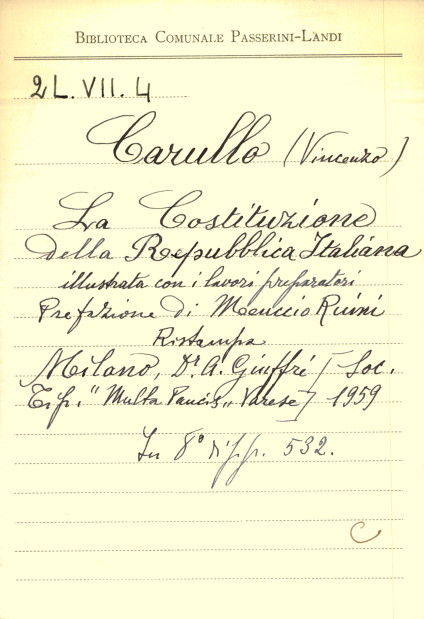 BIBLIOTECA COMUNALE PASSERINI-LANDI
2L.VII.4
Carullo (Vincenzo)
La Costituzione
della Repubblica Italiana
illustrata con i lavori preparatori
Prefazione di Meuccio Ruini
Ristampa
Milano, Dr. A. Giuffré [Soc.
Tip. "Multa Paucis" Varese] 1959
In 8° di pp. 532.
C